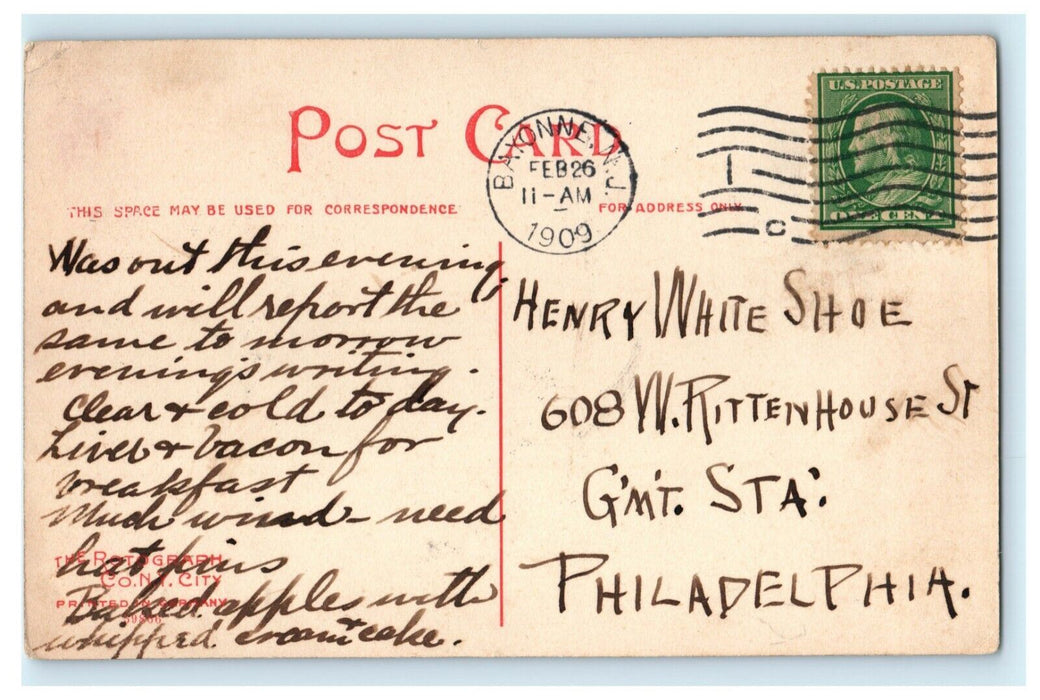 POST CARD
U.S. POSTAGE
ONE CENT
BAYONNE, N.J.
FEB 26
11-AM
1909
C
THIS SPACE MAY BE USED FOR CORRESPONDENCE
FOR ADDRESS ONLY
Was out this evening,
and will report the
same to morrow
evening's writing.
Clear & cold to day.
Liver & bacon for
breakfast
Much wind - need
hat pins
Baked apples with
whipped cream & cake.
THE ROTOGRAPH
CO. N.Y. CITY
PRINTED IN GERMANY
HENRY WHITE SHOE
608 W. RITTENHOUSE ST
G'M'T. STA'.
PHILADELPHIA.